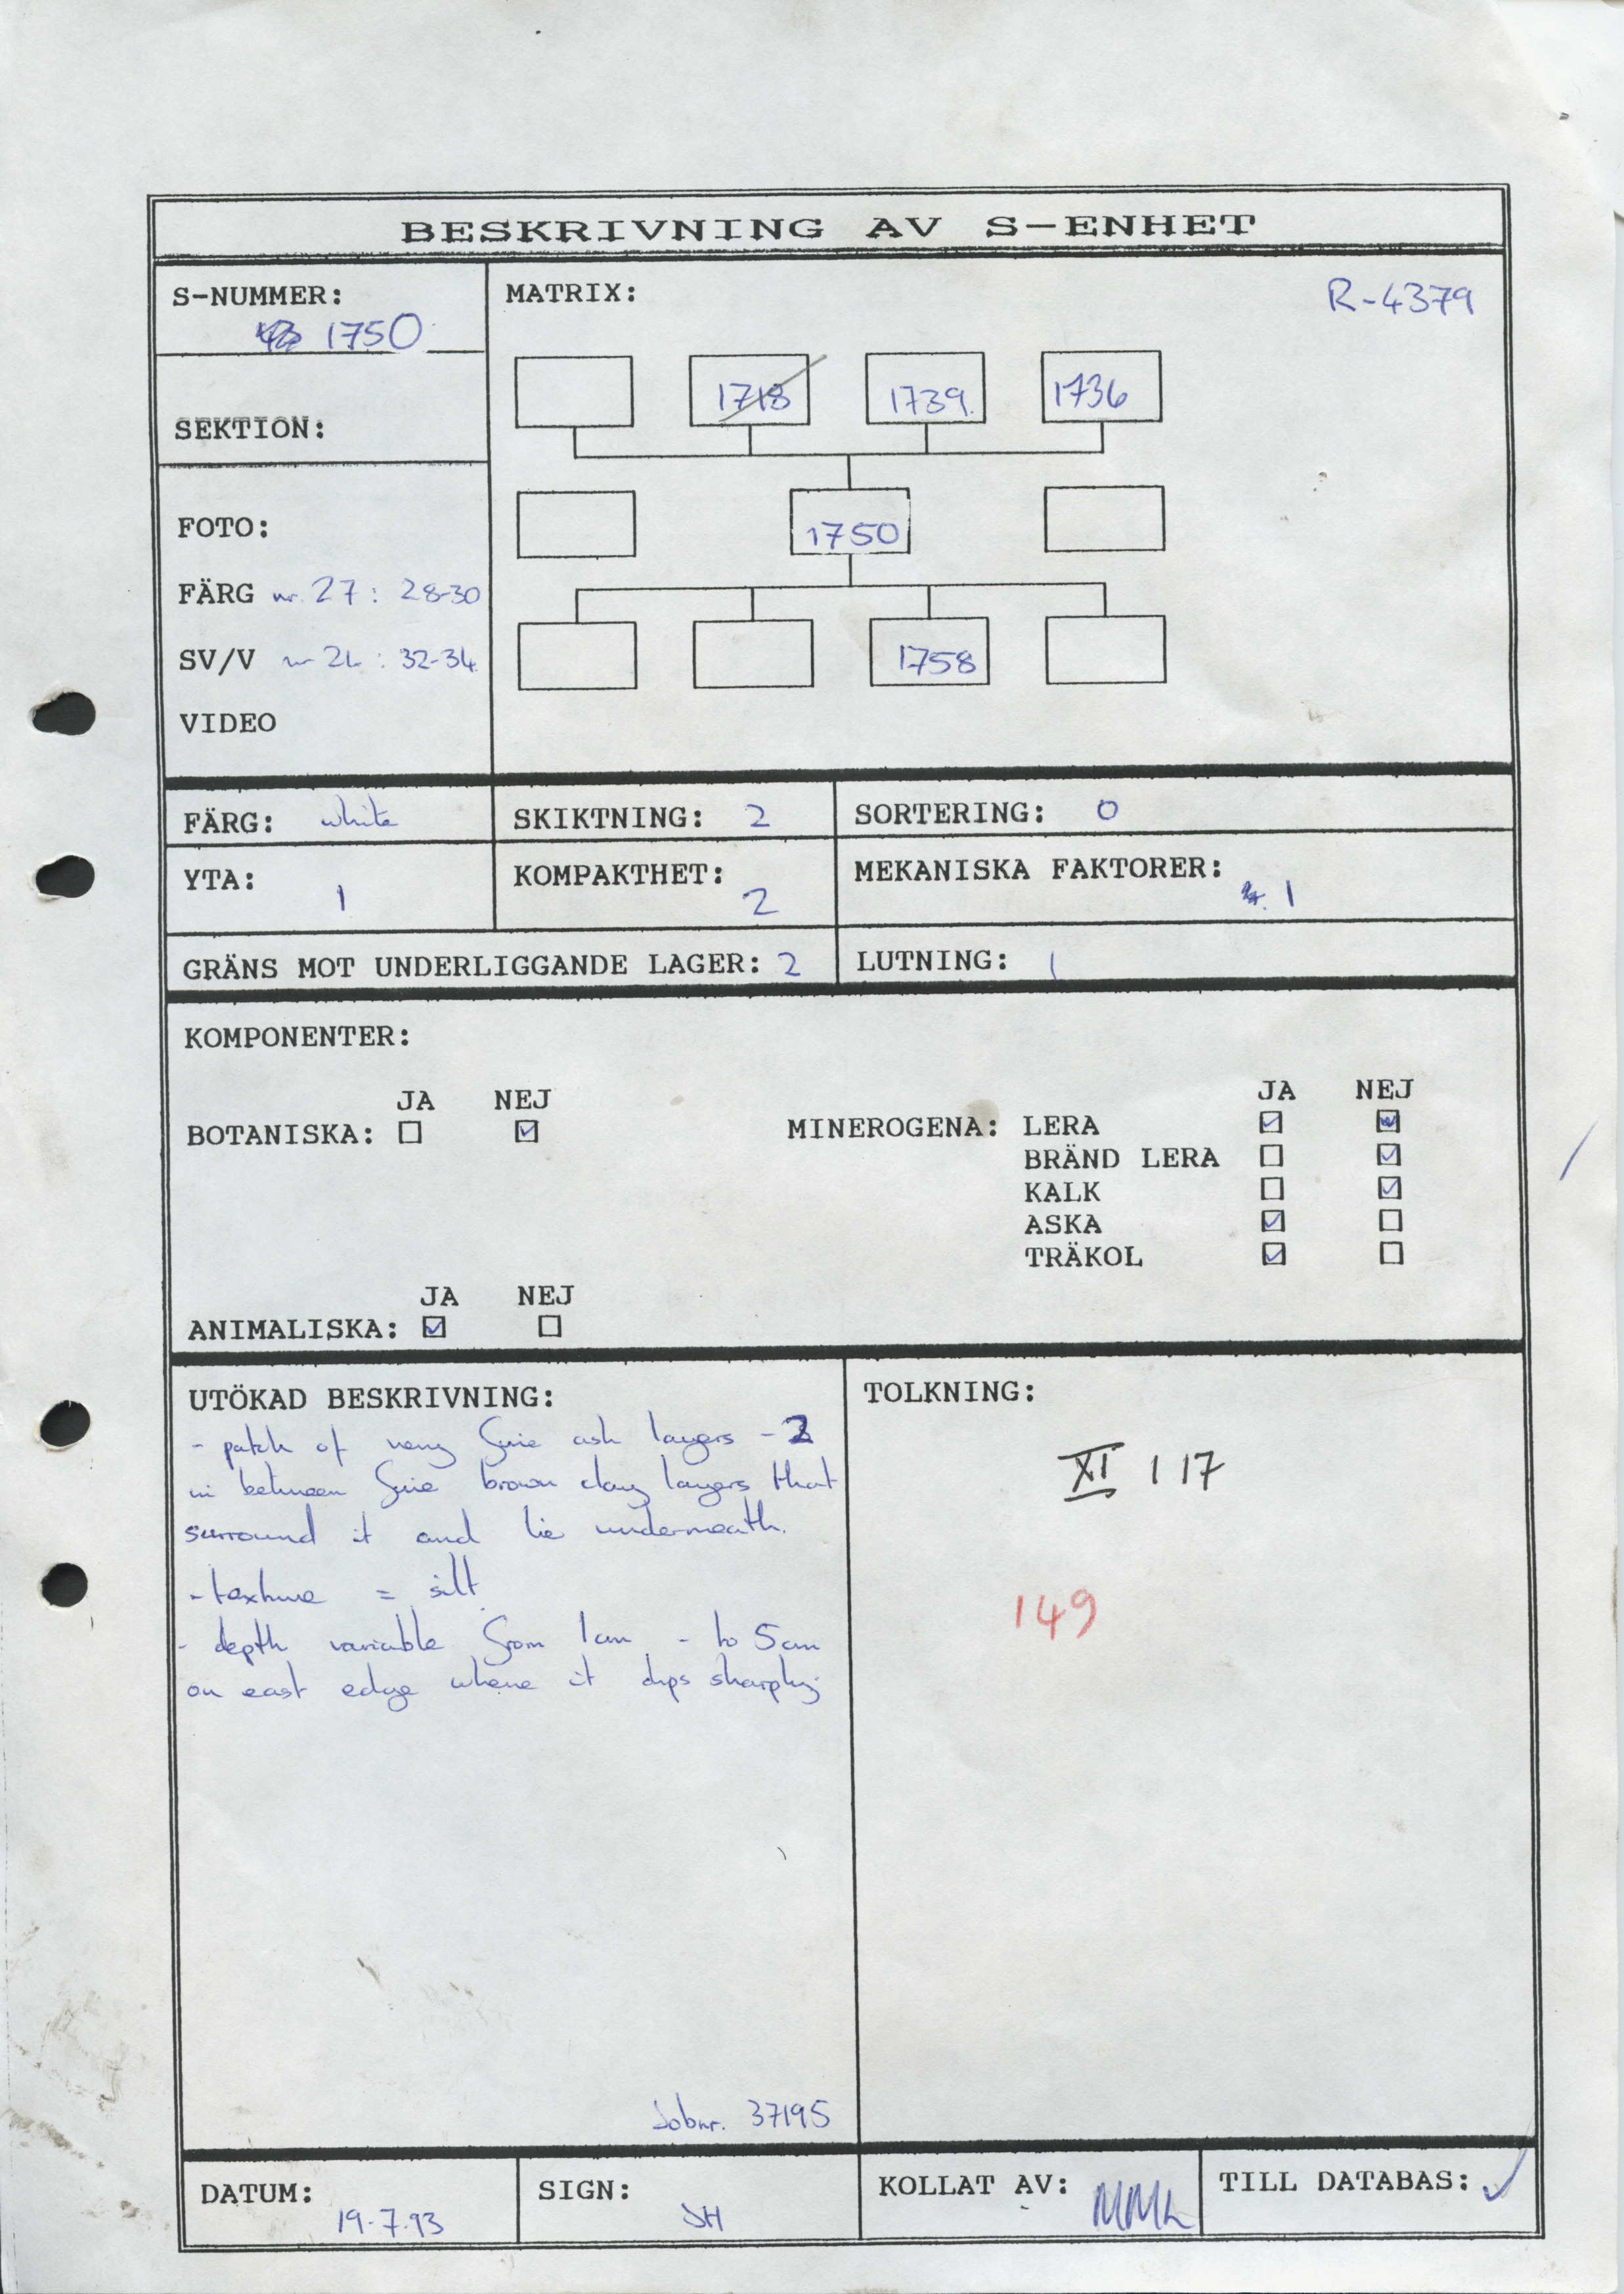 BESKRIVNING AV S-ENHET
S-NUMMER:
1750
MATRIX:
R-4379
1718 1739. 1736
SEKTION:
1750
FOTO:
FÄRG nr. 27: 28-30
SV/V nr : 32-34
1758
VIDEO
FÄRG: white
SKIKTNING: 2
SORTERING: 0
YTA: 1
KOMPAKTHET: 2
MEKANISKA FAKTORER: 1
GRÄNS MOT UNDERLIGGANDE LAGER: 2
LUTNING: 1
KOMPONENTER:
JA NEJ
BOTANISKA:
JA NEJ
MINEROGENA: LERA
BRÄND LERA
KALK
ASKA
TRÄKOL
JA NEJ
ANIMALISKA:
UTÖKAD BESKRIVNING:
- patch of very fine ash layers - 2
in between fine brown clay layers that
surround it and lie underneath.
- texture = silt.
- depth variable from 1cm - to 5cm
on east edge where it dips sharply
Jobnr. 37195
TOLKNING:
XI 117
149
DATUM: 19.7.93
SIGN: JH
KOLLAT AV:
TILL DATABAS: ✓